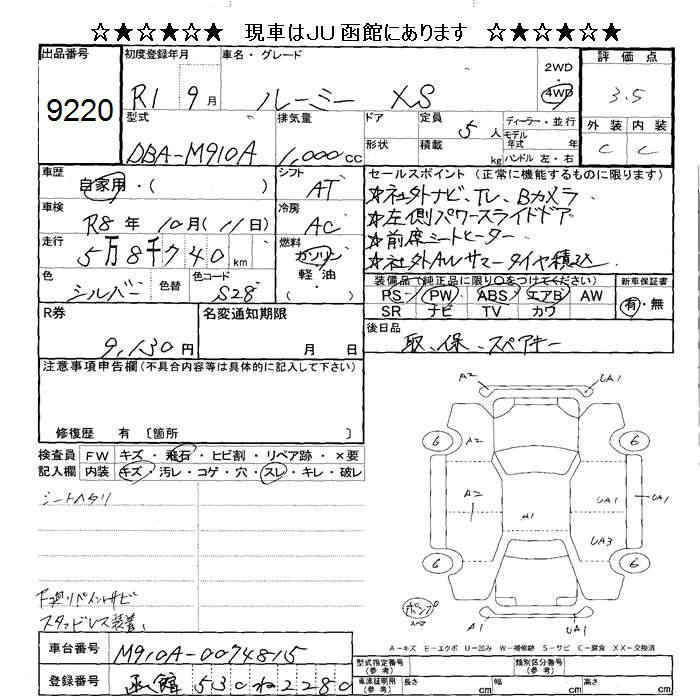 ☆★☆★☆★ 現車はJU函館にあります ☆★☆★☆★
出品番号 初度登録年月 車名・グレード 2WD ・ 4WD 評価点
9220 R1 9月 ルーミー XS 3.5
型式 排気量 ドア 定員 5人 ディーラー・並行 外装 内装
DBA-M910A 1,000cc 形状 積載 kg モデル年式 年 ハンドル 左・右 C C
車歴 自家用・( ) シフト AT セールスポイント(正常に機能するものに限ります)
☆社外ナビ、TV、Bカメラ
車検 R8年 10月(11日) 冷房 AC ☆左側パワースライドドア
☆前席シートヒーター
走行 5万8千740km 燃料 ガソリン・軽油・( ) ☆社外AWサマータイヤ積込
色 シルバー 色替 色コード S28 装備品で純正品に限り○をつけてください 新車保証書
PS PW ABS エアB AW 有・無
SR ナビ TV カワ
R券 9,130円 名変通知期限 月 日 後日品
取、保、スペアキー
注意事項申告欄(不具合内容等は具体的に記入して下さい)
修復歴 有 〔箇所 〕
検査員 FW キズ・飛石・ヒビ割・リペア跡・×要
記入欄 内装 キズ・汚レ・コゲ・穴・スレ・キレ・破レ
シートヘタリ
下廻リペイントサビ
スタッドレス装着
A2 UA1
6 A2 6
A2 A1 UA1 UA1
UA3
6 6
ポンプ
スペア
A1 UA1
A-キズ E-エクボ U-凹み W-補修跡 S-サビ C-腐食 XX-交換済
車台番号 M910A-0074815
登録番号 函館 530 ね 2280
型式指定番号(参考) 類別区分番号(参考)
車庫証明用(参考) 長さ cm 幅 cm 高さ cm